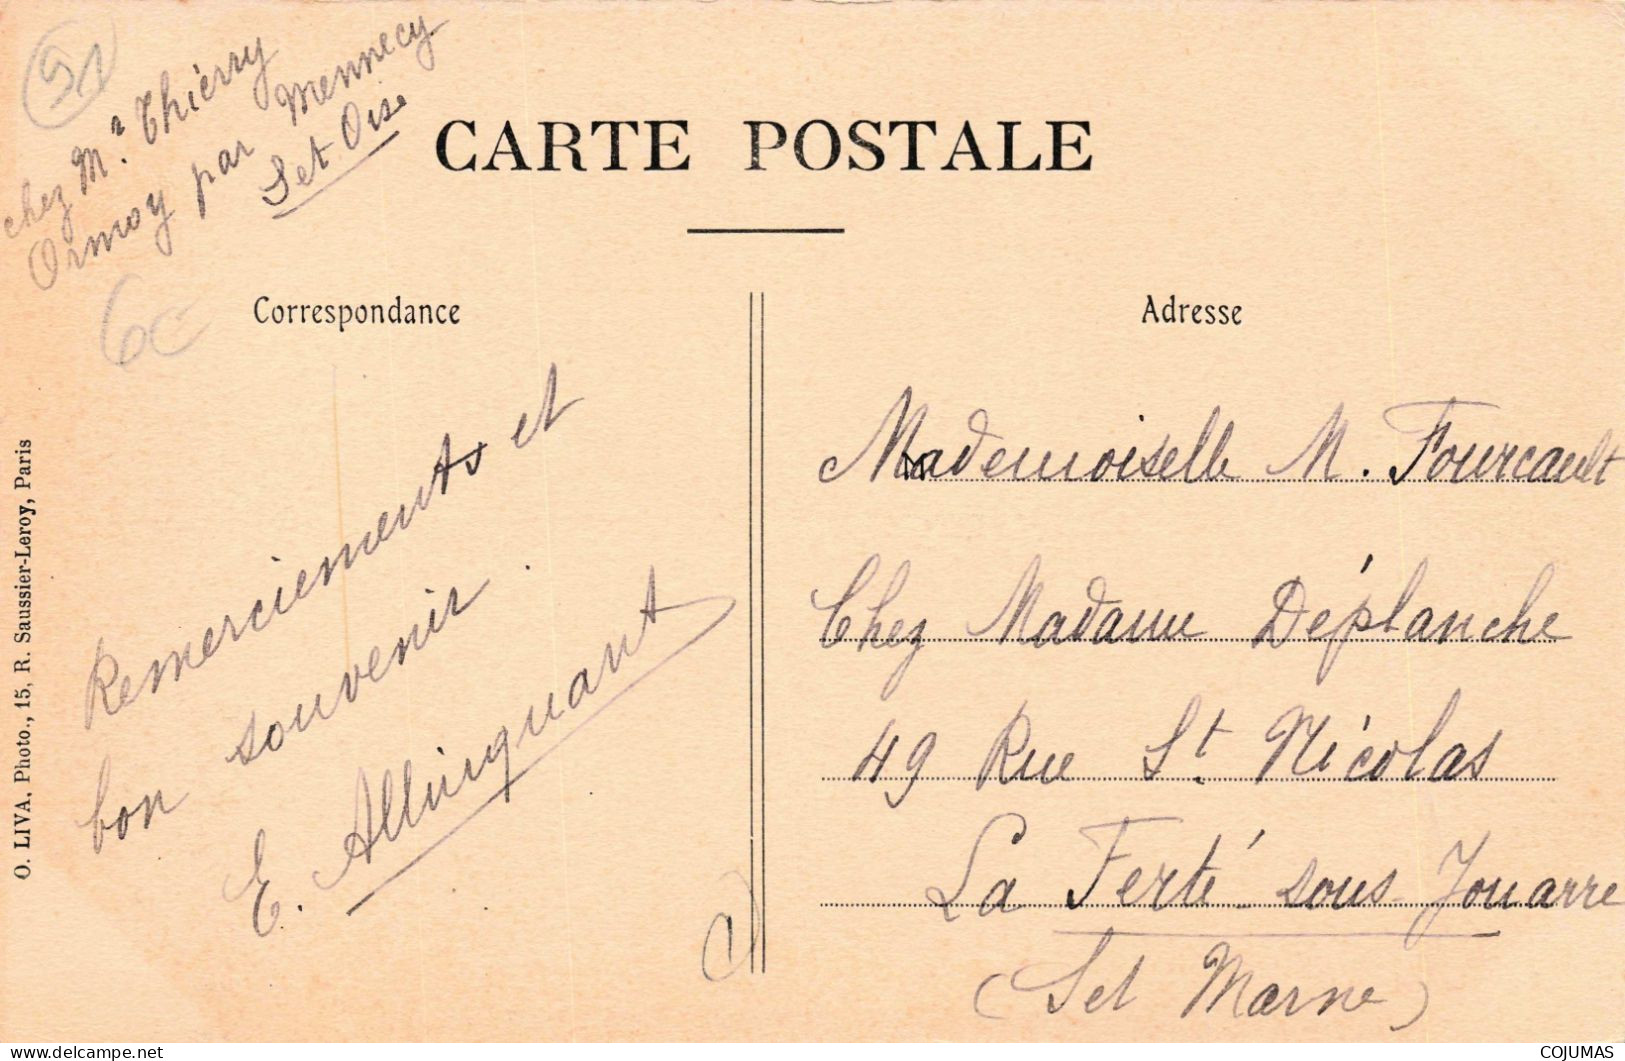 91
chez Mr Thierry
Ormoy par Mennecy
S et Oise
6€
CARTE POSTALE
Correspondance
Adresse
Remerciements et
bon souvenir.
E. Allinquant
Mademoiselle M. Fourcault
Chez Madame Déplanche
49 Rue St. Nicolas
La Ferté-sous-Jouarre
(S et Marne)
O. LIVA, Photo., 15, R. Saussier-Leroy, Paris
delcampe.net
COJUMAS